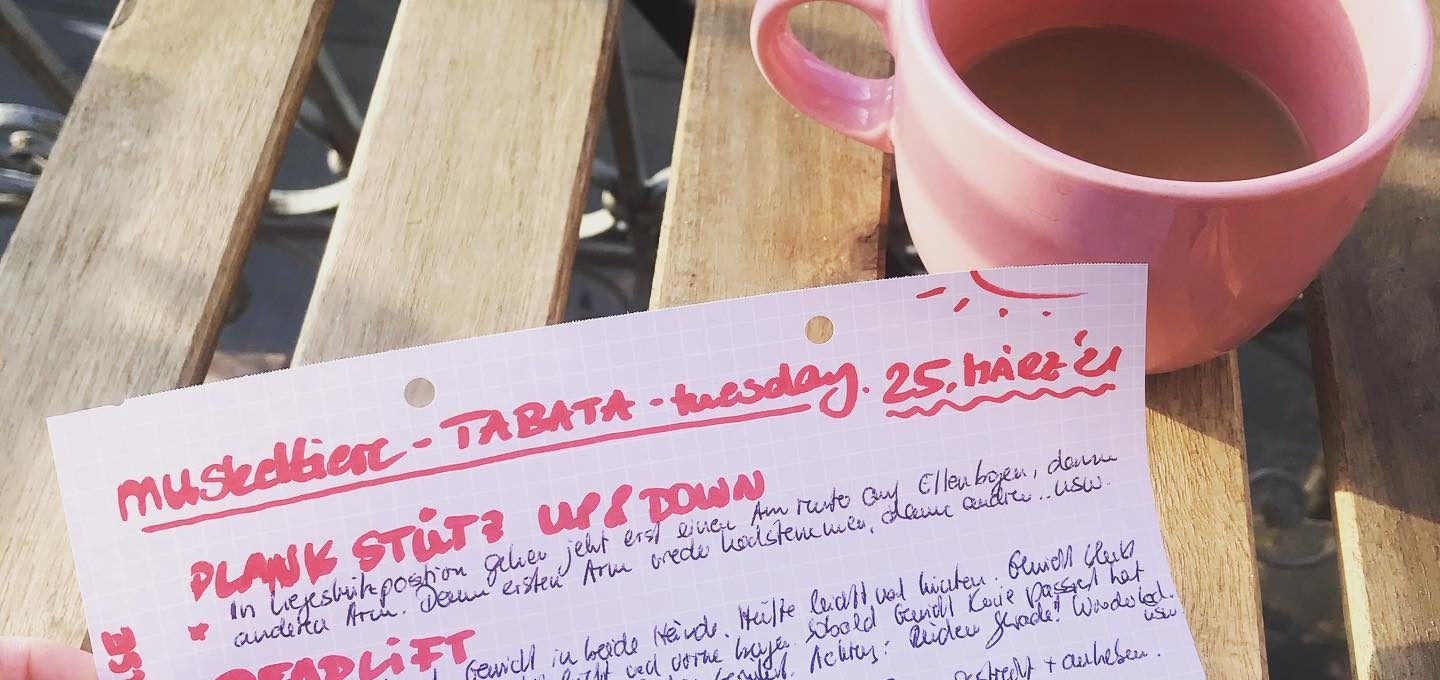 muskeltiere - TABATA - tuesday. 25. MÄRZ '21
PLANK STÜTZ UP & DOWN
* In Liegestützposition gehen jetzt erst einen Arm runter auf Ellenbogen, dann
anderen Arm. Dann ersten Arm wieder hochstemmen, dann andren.. usw.
DEADLIFT
Gewicht in beide Hände. Hüfte leicht nach hinten. Gewicht bleibt
nach vorne beugen. Sobald Gewicht Knie passiert hat
Achtung: Rücken gerade! Wiederhol.
usw
gestreckt + anheben.